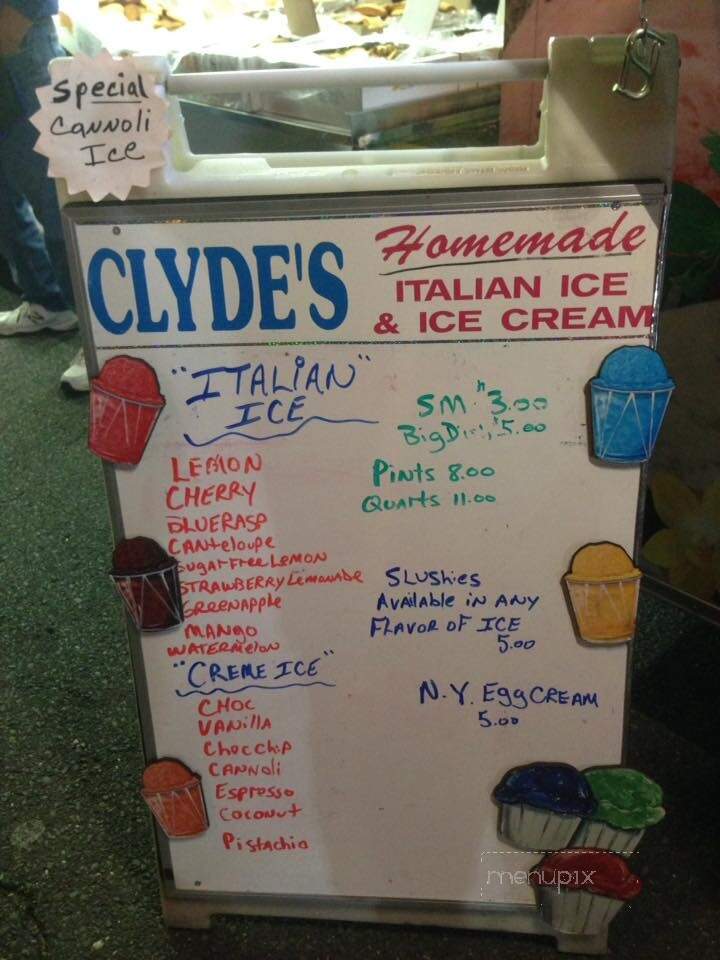 Special
Cannoli
Ice
CLYDE'S
Homemade
ITALIAN ICE
& ICE CREAM
"ITALIAN"
ICE
SM 3.00
$5.00
Pints 8.00
Quarts 11.00
LEMON
CHERRY
BLUERASP
CANteloupe
Sugar Free LEMON
STRAWBERRY Lemonade
GREENAPPLE
MANGO
WATERMElon
Slushies
Available in ANY
Flavor of ICE
5.00
"CREME ICE"
CHOC
VANillA
ChocChip
CANNOli
Espresso
Coconut
Pistachio
N.Y. Egg CREAM
5.00
menupix